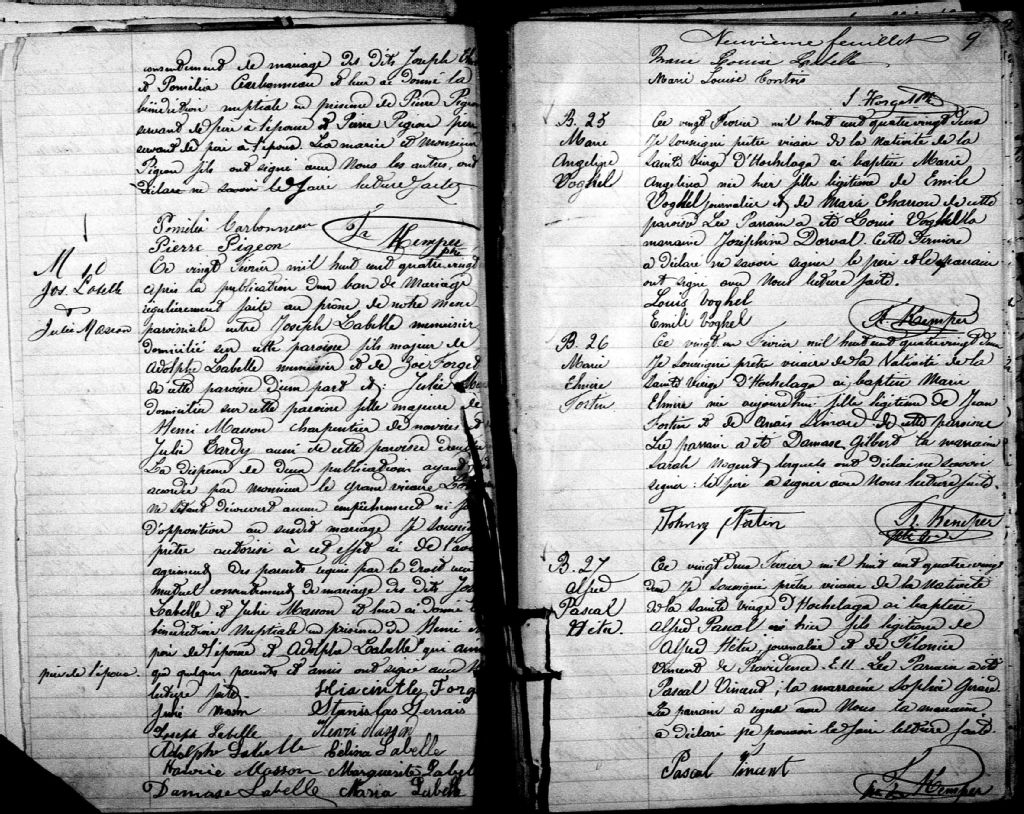 consentement de mariage des dits Joseph
et Pomélia Carbonneau et leur ai donné la
bénédiction nuptiale en présence de Pierre Pigeon
servant de père à l'épouse et Pierre Pigeon père
servant de père à l'époux. La mariée et monsieur
Pigeon fils ont signé avec Nous les autres, ont
déclaré ne savoir le faire lecture faite
Pomélia Carbonneau
Pierre Pigeon
Kemper
ptre
M 10
Jos. Labelle
&
Julie Masson
Ce vingt Février mil huit cent quatre vingt
après la publication d'un ban de Mariage
régulièrement faite au prône de notre messe
paroissiale entre Joseph Labelle menuisier
domicilié sur cette paroisse fils majeur de
Adolphe Labelle menuisier et de Zoé Forget
de cette paroisse d'une part et: Julie
domiciliée sur cette paroisse fille majeure de
Henri Masson charpentier de navires et
Julie Tardy aussi de cette paroisse d'autre
La dispense de deux publications ayant été
accordée par monsieur le grand vicaire
ne s'étant découvert aucun empêchement ni
d'opposition au susdit mariage Je soussigné
prêtre autorisé à cet effet ai de l'avis
agrément des parents requis par le droit reçu
mutuel consentement de mariage des dits
Labelle et Julie Masson et leur ai donné la
bénédiction Nuptiale en présence de Henri
père de l'épouse et Adolphe Labelle qui
père de l'époux.
que quelques parents et amis ont signé avec
lecture faite.
Hiacinthe Forget
Julie Masson
Stanislas Gervais
Joseph Labelle
Henri Masson
Adolphe Labelle
Edina Labelle
Masson
Marguerite Labelle
Damase Labelle
Maria Labelle
Neuvième feuillet
9
Marie Louise Labelle
Marie Louise
B. 25
Marie
Angelina
Voghel
Ce vingt Février mil huit cent quatre vingt deux
Je soussigné prêtre vicaire de la Nativité de la
Sainte Vierge d'Hochelaga ai baptisé Marie
Angelina née hier fille légitime de Emile
Voghel journalier et de Marie Charron de cette
paroisse Le Parrain a été Louis Voghel la
marraine Joséphine Dorval. Cette dernière
a déclaré ne savoir signer le père et le parrain
ont signé avec Nous lecture faite.
Louis Voghel
Emili Voghel
Kemper
B. 26
Marie
Elmire
Fortin
Ce vingt un Février mil huit cent quatrevingt deux
Je soussigné prêtre vicaire de la Nativité de la
Sainte Vierge d'Hochelaga ai baptisé Marie
Elmire née aujourd'hui fille légitime de Jean
Fortin et de Anais Simard de cette paroisse
Le parrain a été Damase Gilbert la marraine
Sarah Nugent, lesquels ont déclaré ne savoir
signer: le père a signé avec Nous lecture faite.
Johnny Fortin
Kemper
B. 27
Alfred
Pascal
Hétu.
Ce vingt deux Février mil huit cent quatre vingt
deux Je soussigné prêtre vicaire de la Nativité
de la Sainte Vierge d'Hochelaga ai baptisé
Alfred Pascal né hier fils légitime de
Alfred Hétu journalier et de Félonise
Vincent de Providence E.U. Le Parrain a été
Pascal Vincent; la marraine Sophie Girard
Le parrain a signé avec Nous la marraine
a déclaré ne pouvoir le faire lecture faite.
Pascal Vincent
Kemper